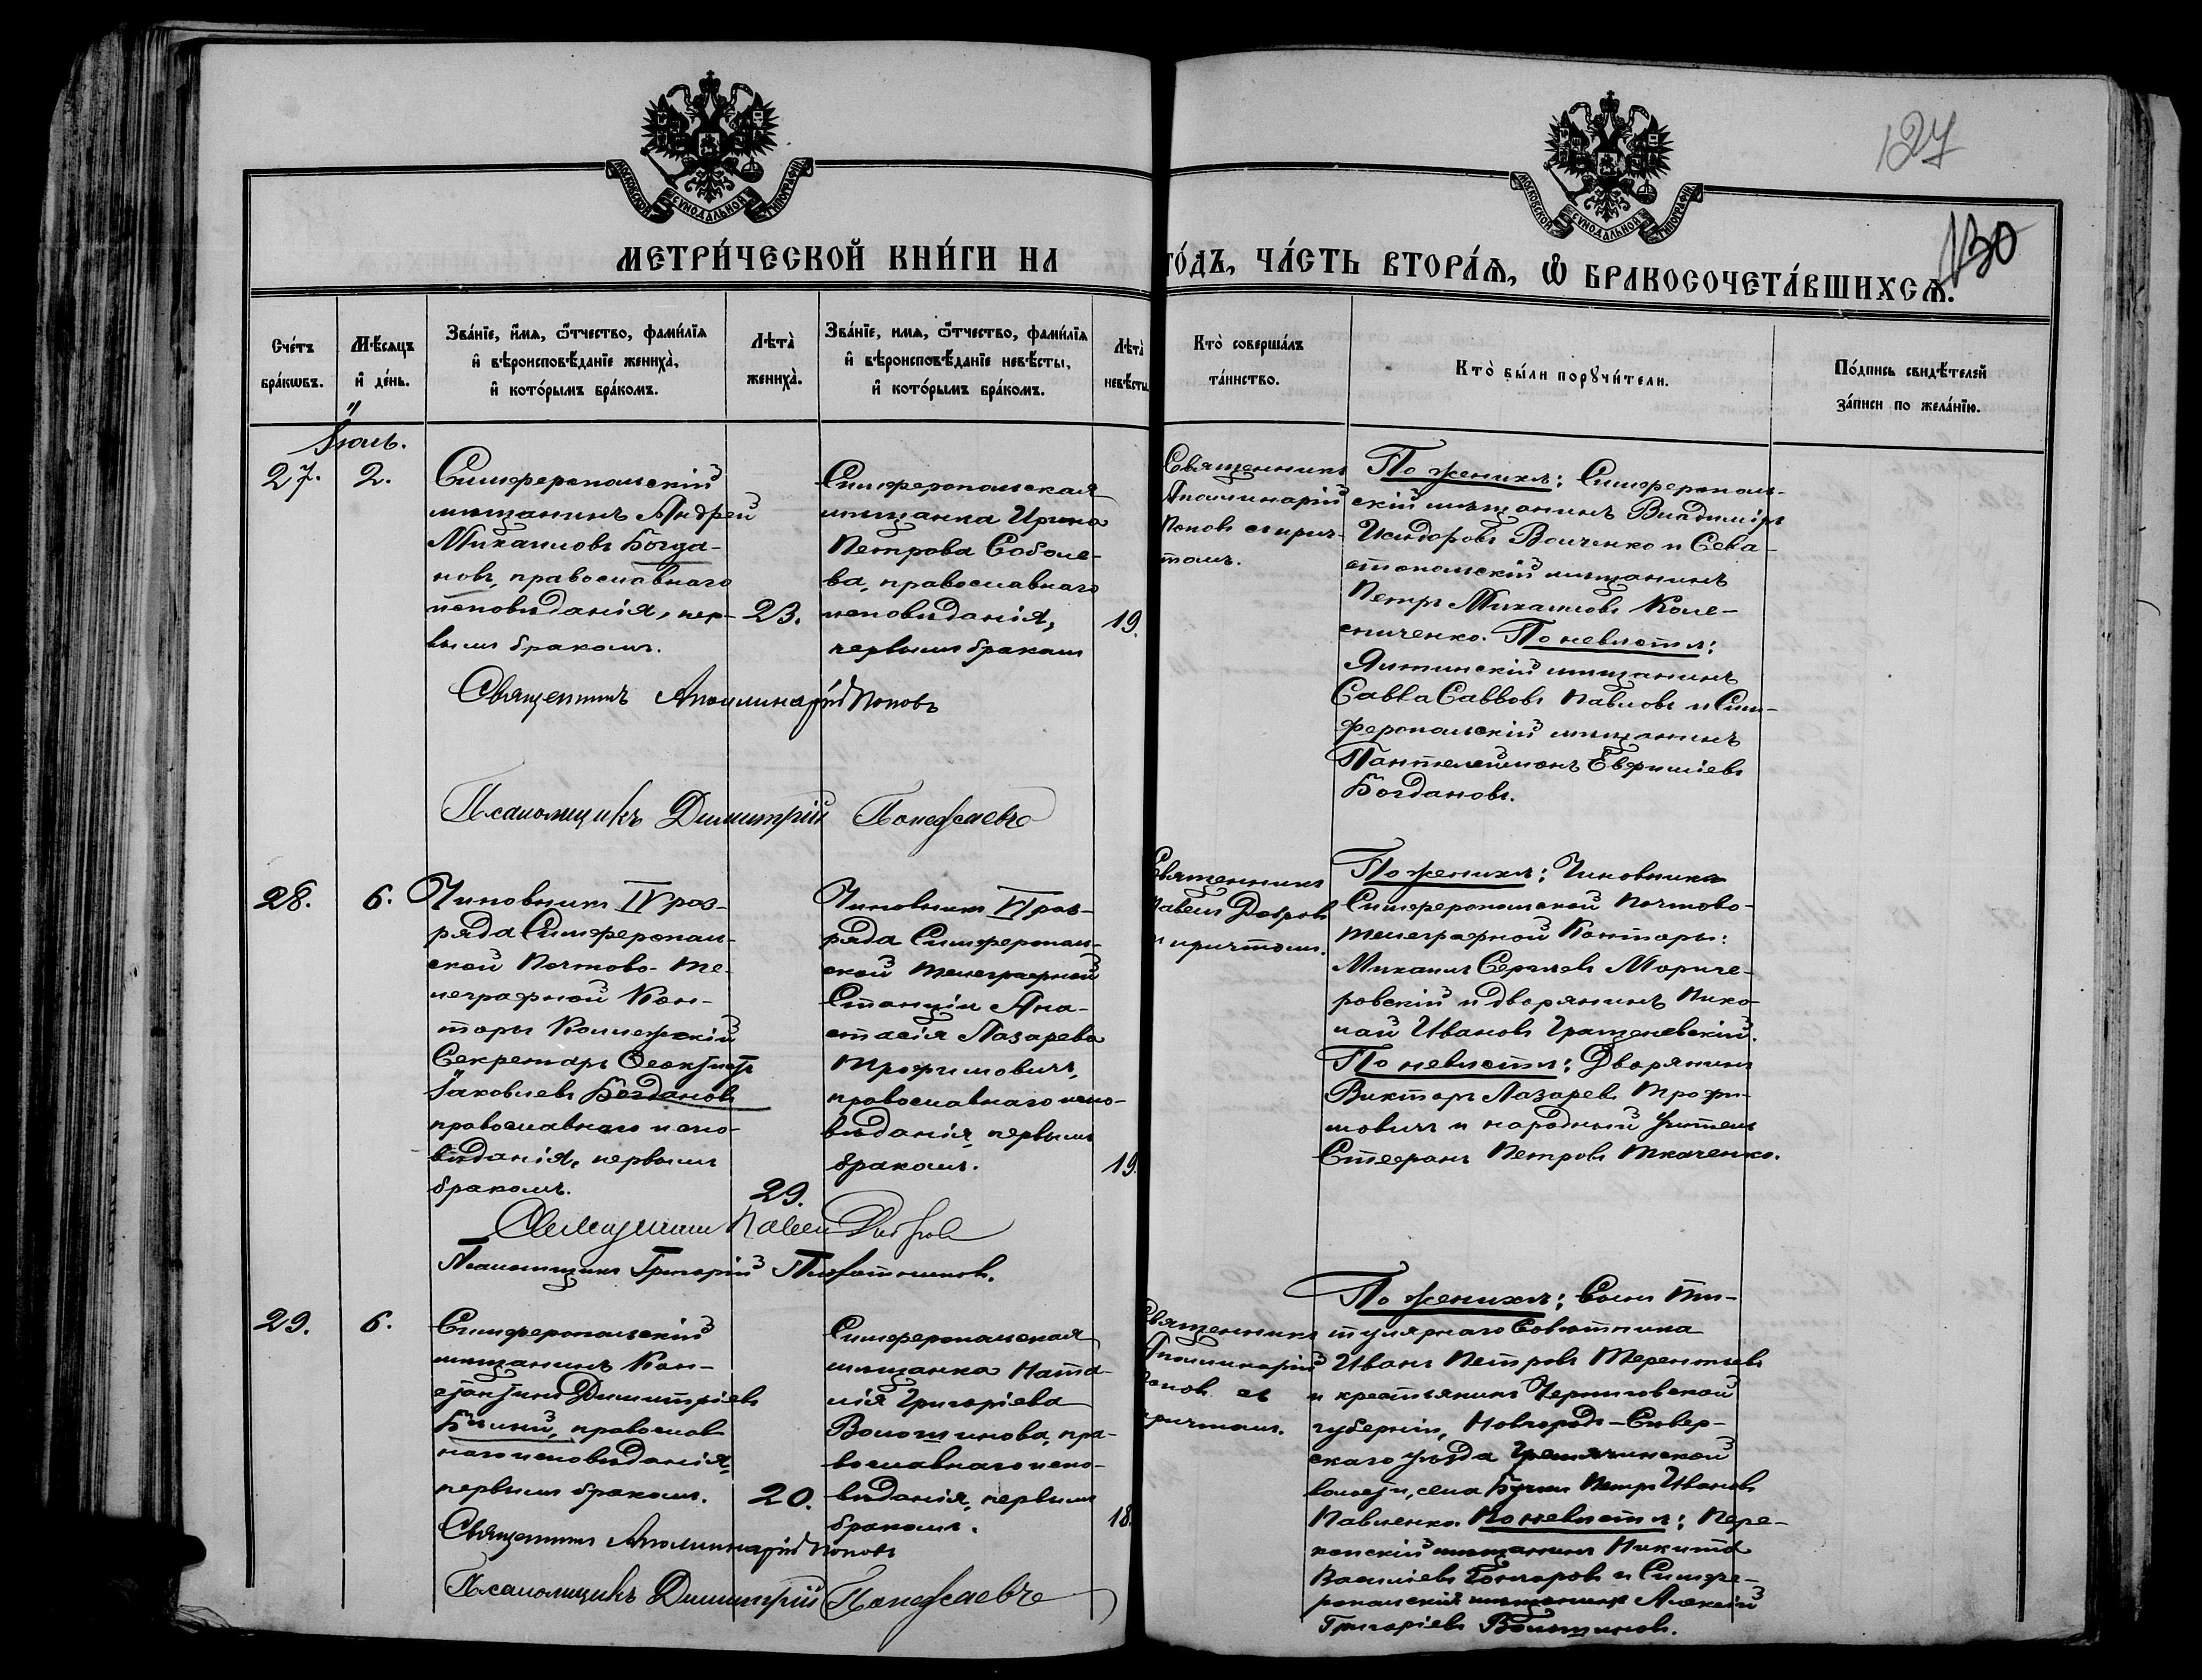 127
130
МОСКОВСКОЙ СѴНОДАЛЬНОЙ ТИПОГРАФІИ
МОСКОВСКОЙ СѴНОДАЛЬНОЙ ТИПОГРАФІИ
МЕТРИ́ЧЕСКОЙ КНИ́ГИ НА
ГО́ДЪ, ЧА́СТЬ ВТОРА́Ѧ, Ѽ БРАКОСОЧЕТА́ВШИХСѦ.
Сче́тъ
бра́кѡвъ.
Мѣ́сяцъ
и҆ де́нь.
Зва́нїе, и҆́мѧ, ѻ҆́тчество, фами́лїѧ
и҆ вѣроисповѣ́данїе жениха̀,
и҆ кото́рымъ бра́комъ.
Лѣта̀
жениха̀.
Зва́нїе, имѧ, ѻ҆́тчество, фами́лїѧ
и҆ вѣроисповѣ́данїе невѣ́сты,
и҆ кото́рымъ бра́комъ.
Лѣта̀
невѣ́сты.
Кто̀ соверша́лъ
та́инство.
Кто̀ бы́ли порꙋчи́тели.
По́дпись свидѣ́телей
за́писи по жела́нїю.
Іюль.
27.
2.
Симферопольскій
мѣщанинъ Андрей
Михаиловъ Богда-
новъ, православнаго
исповѣданія, пер-
вымъ бракомъ.
23.
Симферопольская
мѣщанка Ирина
Петрова Соболе-
ва, православнаго
исповѣданія,
первымъ бракомъ
19.
Священникъ
Аполинарій
Поповъ съ прич-
томъ.
По женихѣ: Симферополь-
скій мѣщанинъ Владиміръ
Исидоровъ Волченко и Сева-
стопольскій мѣщанинъ
Петръ Михаиловъ Коле-
сниченко. По невѣстѣ:
Ялтинскій мѣщанинъ
Савва Саввовъ Павловъ и Сим-
феропольскій мѣщанинъ
Пантелеимонъ Евфиміевъ
Богдановъ.
Священникъ Аполинарій Поповъ
Псаломщикъ Димитрій
28.
6.
Чиновникъ IV раз-
ряда Симферополь-
ской Почтово-Те-
леграфной Кон-
торы Коллежскій
Секретарь Ѳеоктистъ
Іаковлевъ Богдановъ
православнаго испо-
вѣданія, первымъ
бракомъ.
29.
Чиновникъ VI раз-
ряда Симферополь-
ской телеграфной
Станціи Ана-
стасія Лазарева
Трофимовичъ,
православнаго испо-
вѣданія, первымъ
бракомъ.
19.
Священникъ
Павелъ Добровъ
съ причтомъ.
По женихѣ: Чиновника
Симферопольской Почтово-
телеграфной Конторы:
Михаилъ Сергѣевъ
и дворянинъ Нико-
лай Ивановъ
По невѣстѣ: Дворянинъ
Викторъ Лазаревъ Трофи-
мовичъ и народный учитель
Стефанъ Петровъ Ткаченко.
Священникъ Павелъ Добровъ
Псаломщикъ Григорій
29.
6.
Симферопольскій
мѣщанинъ Кон-
стантинъ Димитріевъ
Бѣлый, православ
наго исповѣданія,
первымъ бракомъ.
20.
Симферопольская
мѣщанка Ната-
лія Григоріева
Волошинова, пра-
вославнаго испо-
вѣданія, первымъ
бракомъ.
18.
Священникъ
Аполинарій
Поповъ съ
причтомъ.
По женихѣ: Сынъ Ти-
тулярнаго Совѣтника
Иванъ Петровъ Терентьевъ
и крестьянинъ Черниговской
губерніи, Новгородъ-Сѣвер-
скаго уѣзда
волости, села Петръ Ивановъ
Павленко. По невѣстѣ: Пере-
копскій мѣщанинъ Никита
Васильевъ Гончаровъ и Симфе-
ропольскій мѣщанинъ Алексій
Григоріевъ Волошиновъ.
Священникъ Аполинарій Поповъ
Псаломщикъ Димитрій